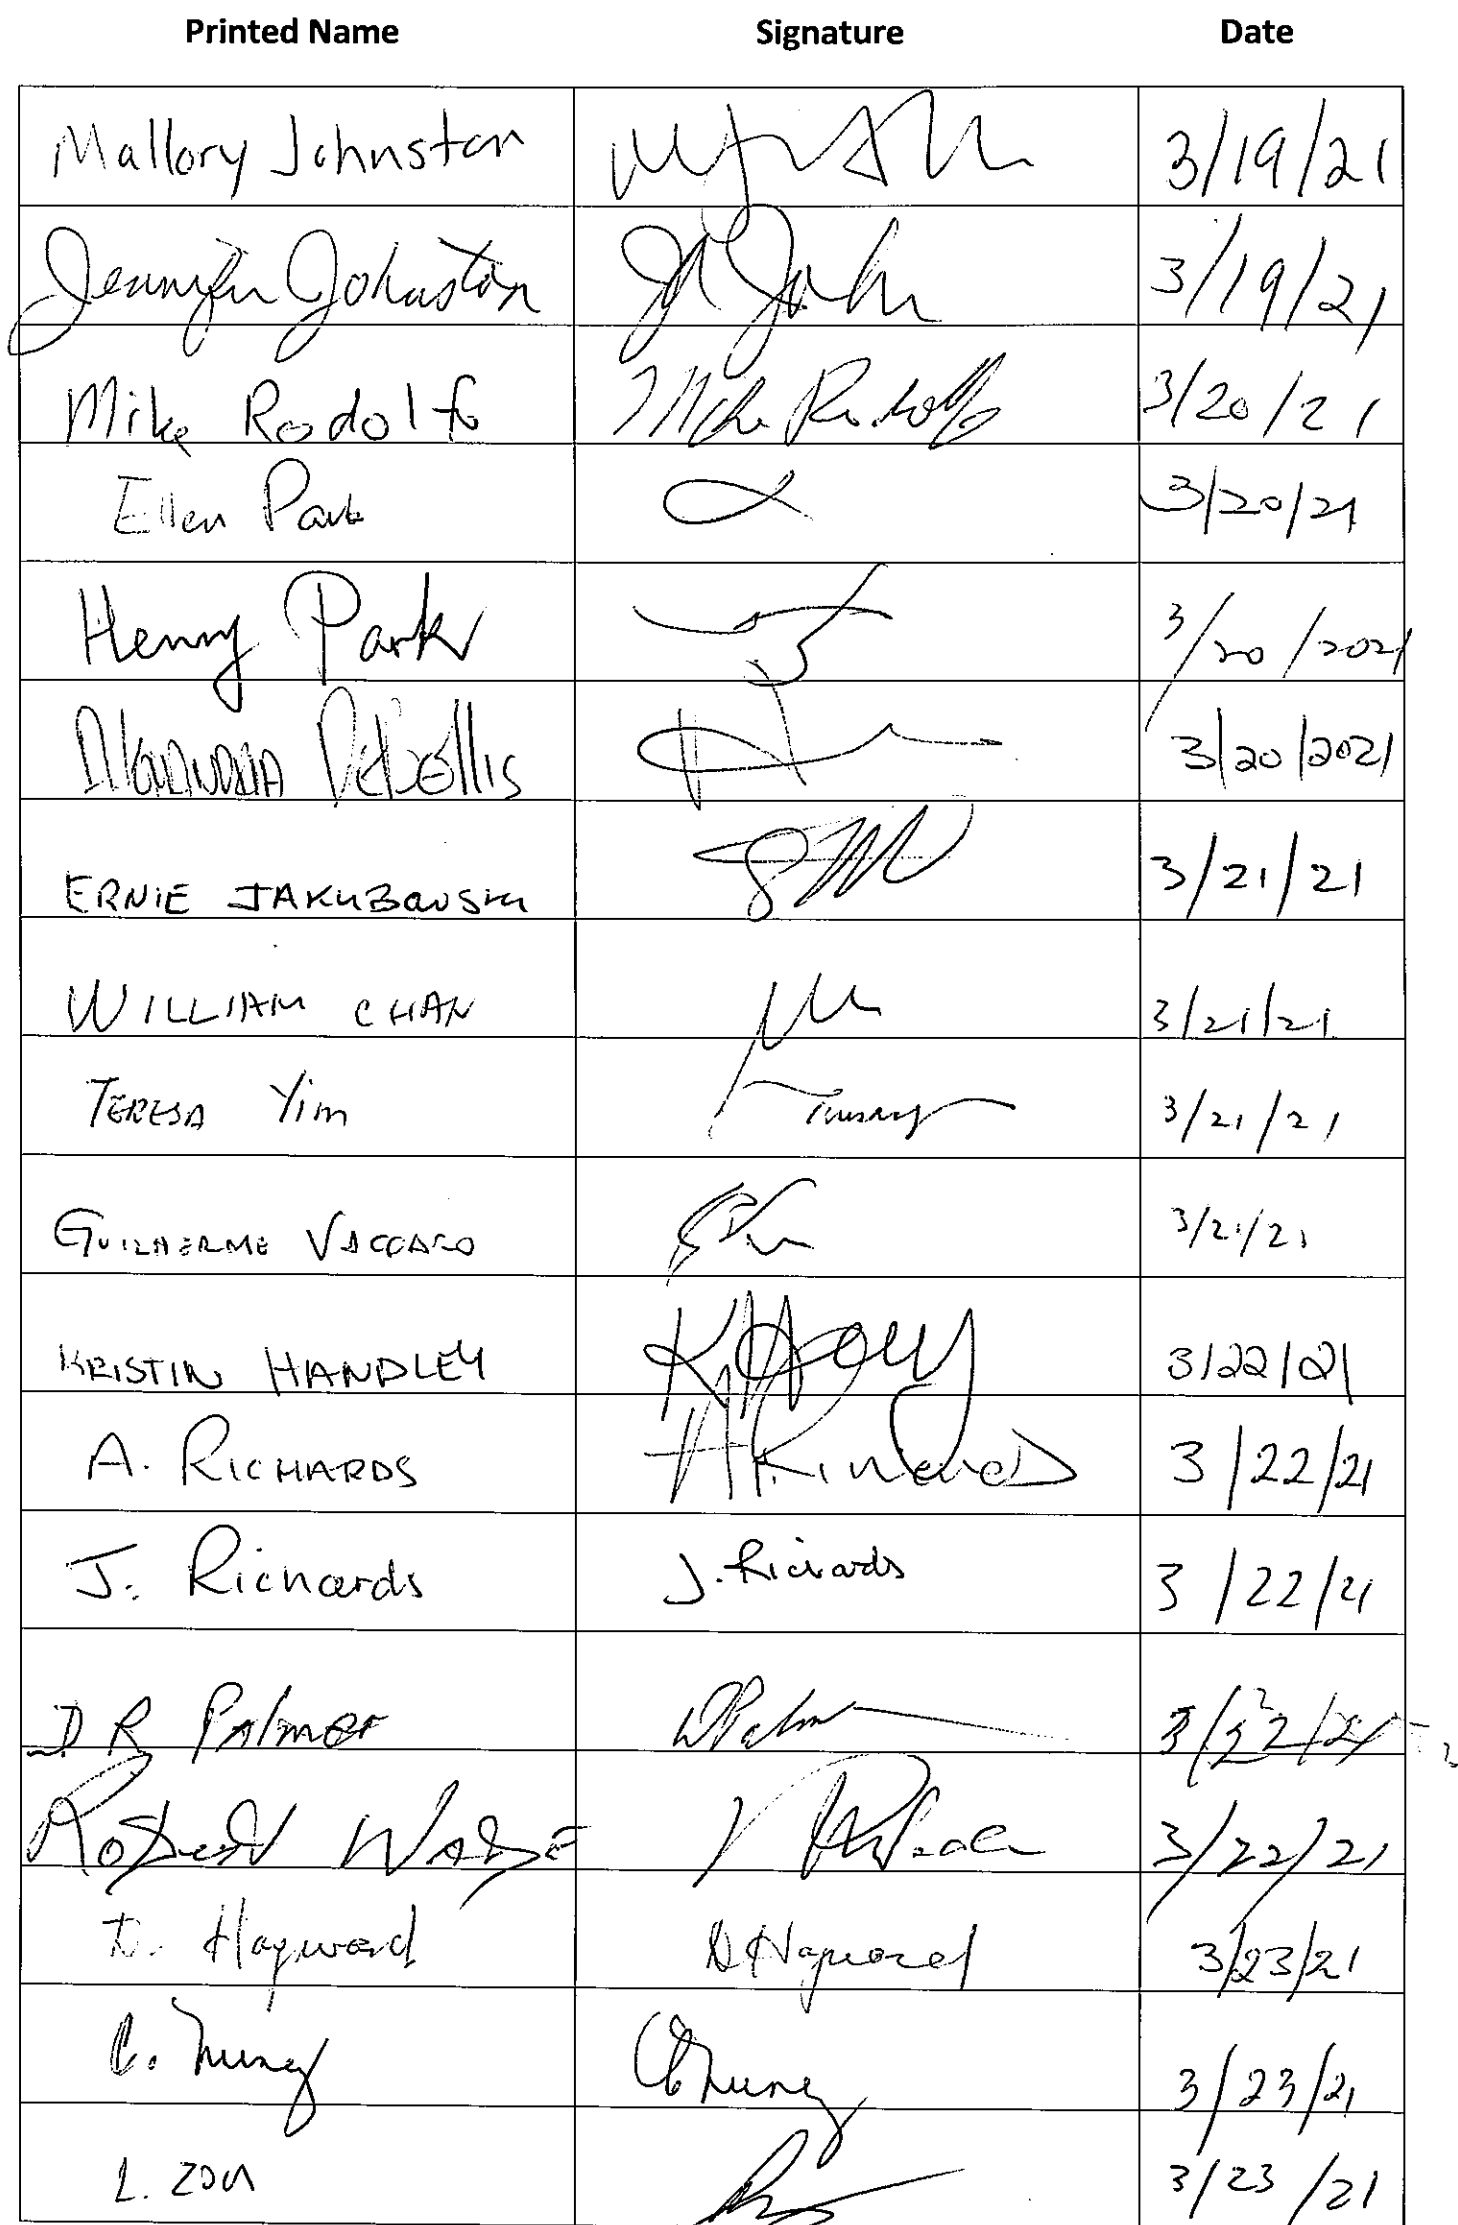 Printed Name Signature Date
Mallory Johnston 3/19/21
Jennifer Johnston 3/19/21
Mike Rodolfo Mike Rodolfo 3/20/21
Ellen Park 3/20/21
Henry Park 3/20/2021
DeBellis 3/20/2021
ERNIE JAKUBOWSKI 3/21/21
WILLIAM CHAN 3/21/21
TERESA Yim 3/21/21
GUILHERME VACCARO 3/21/21
KRISTIN HANDLEY 3/22/21
A. RICHARDS A Richards 3/22/21
J. Richards J. Richards 3/22/21
D R Palmer DPalmer 3/22/21
Robert 3/22/21
D. Hayward D Hayward 3/23/21
C. 3/23/21
L. ZOU 3/23/21